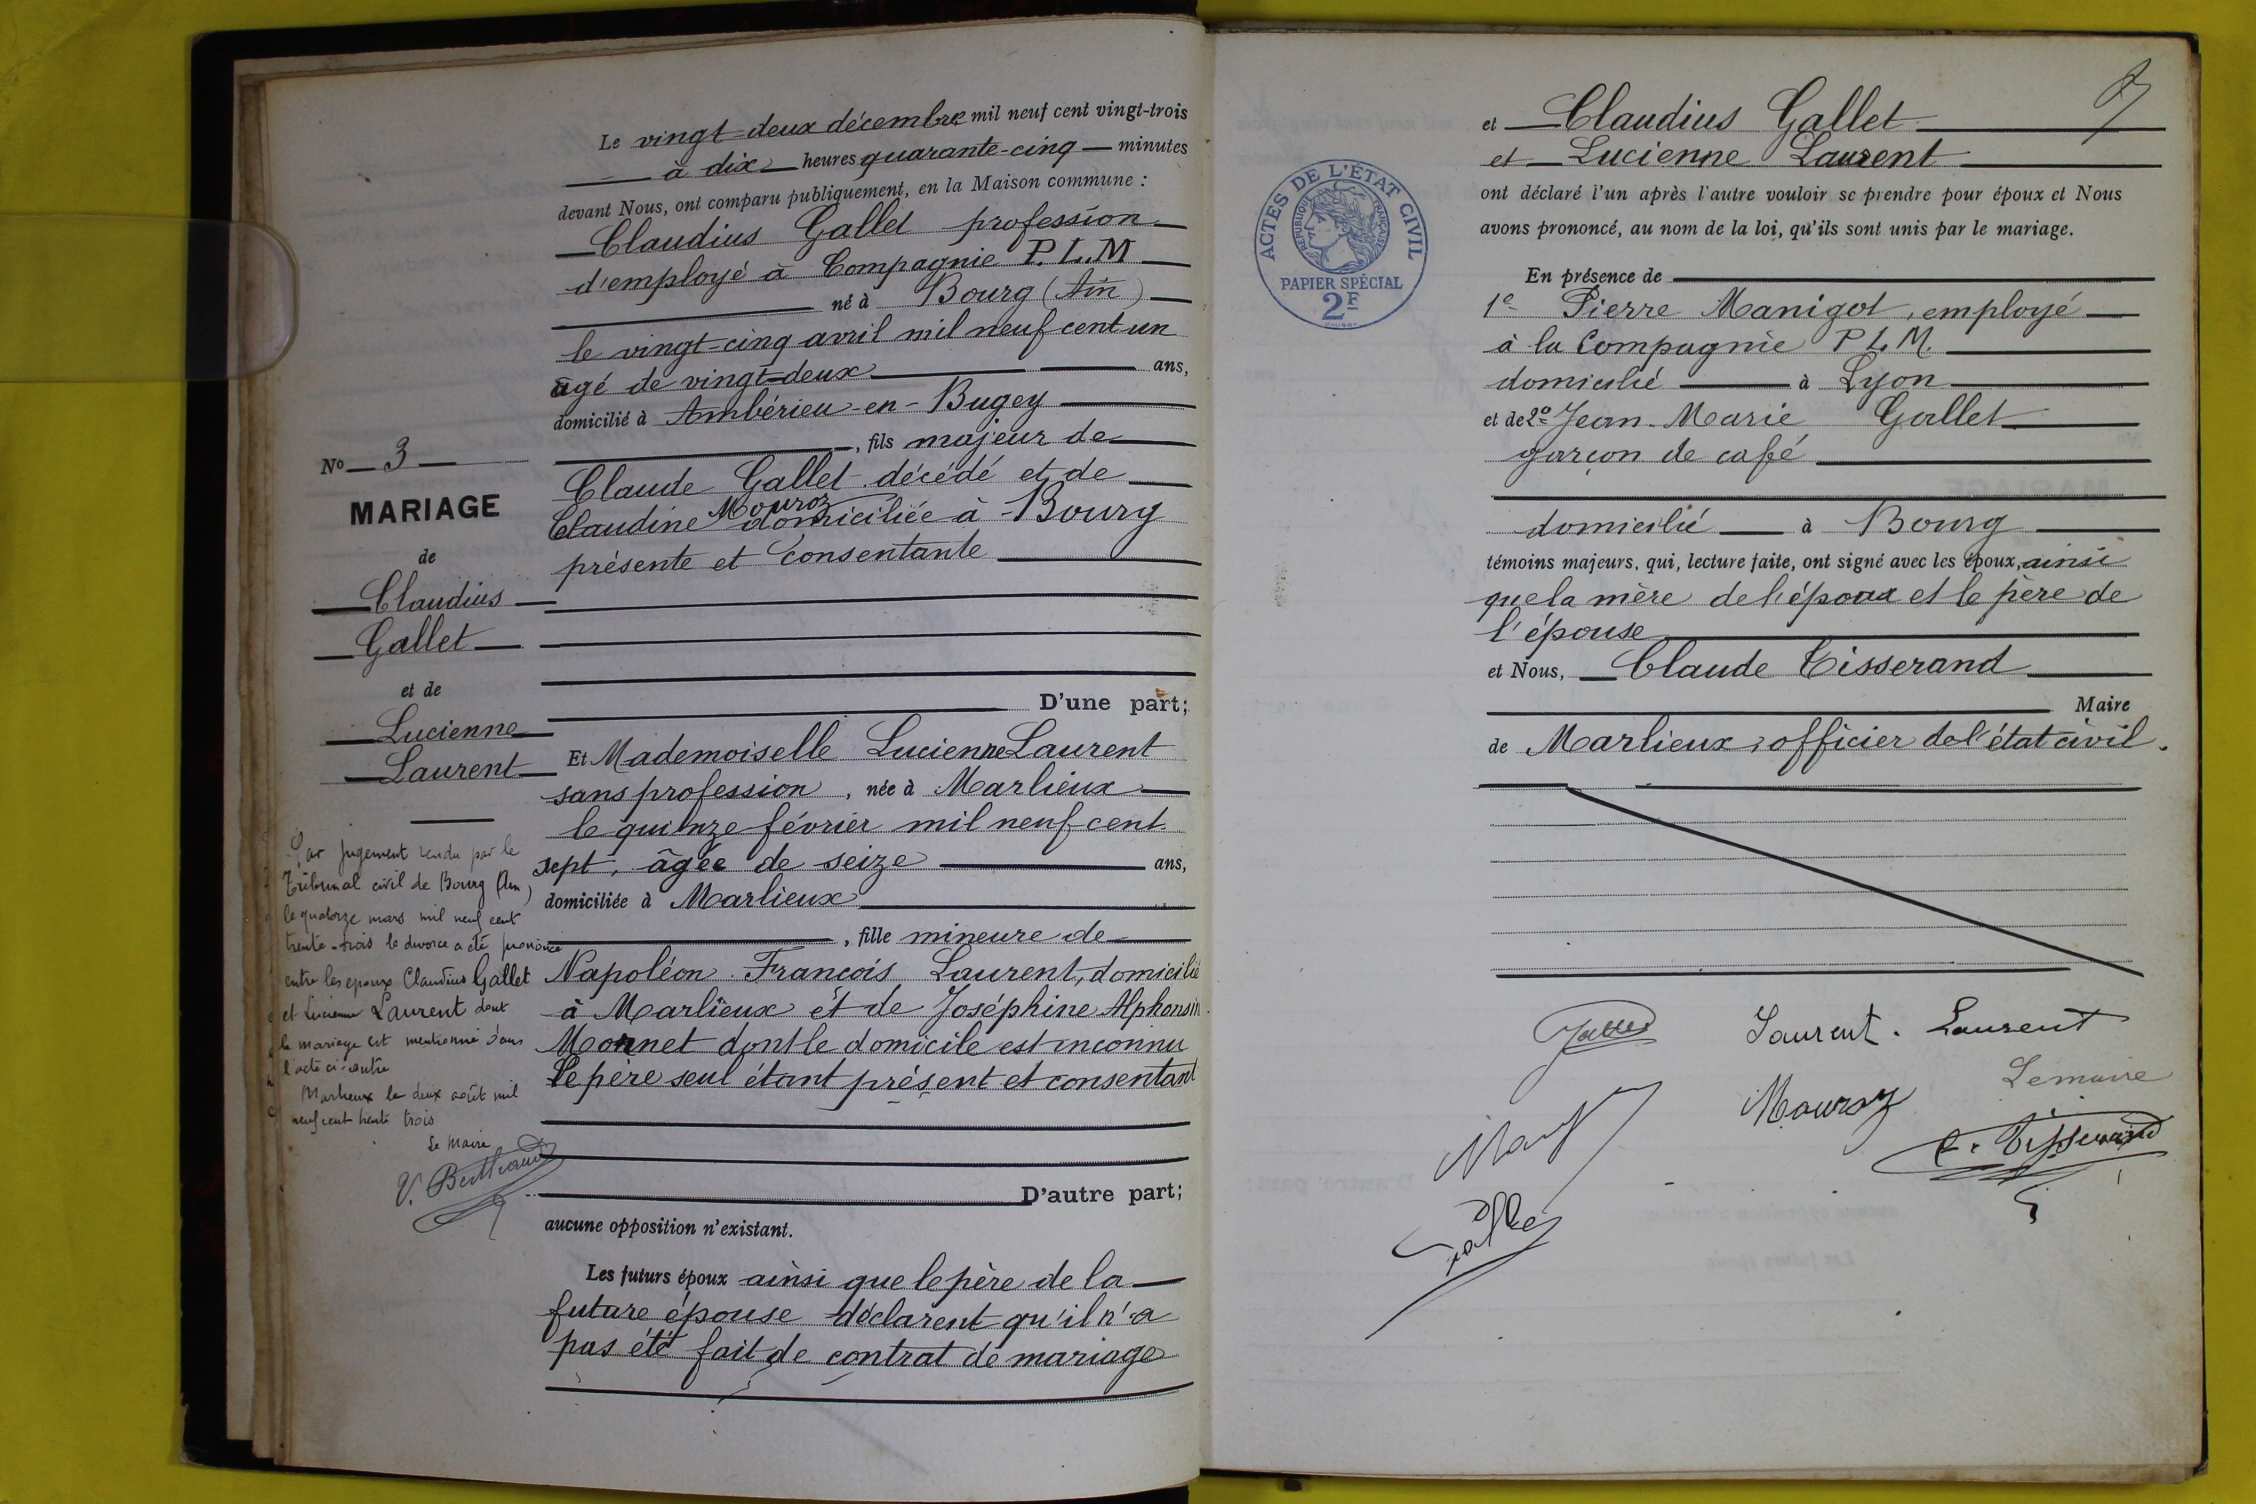 Le vingt-deux décembre mil neuf cent vingt-trois
à dix heures quarante-cinq minutes
devant Nous, ont comparu publiquement, en la Maison commune :
Claudius Gallet profession
d'employé à Compagnie P.L.M
né à Bourg (Ain)
le vingt-cinq avril mil neuf cent un
âgé de vingt-deux ans,
domicilié à Ambérieu-en-Bugey
, fils majeur de
Claude Gallet décédé et de
Claudine Mouroz domiciliée à Bourg
présente et consentante
D'une part;
Et Mademoiselle Lucienne Laurent
sans profession, née à Marlieux
le quinze février mil neuf cent
sept, âgée de seize ans,
domiciliée à Marlieux
, fille mineure de
Napoléon François Laurent, domicilié
à Marlieux et de Joséphine Alphonsin
Monnet dont le domicile est inconnu
Le père seul étant présent et consentant
D'autre part;
aucune opposition n'existant.
Les futurs époux ainsi que le père de la
future épouse déclarent qu'il n'a
pas été fait de contrat de mariage
No 3
MARIAGE
de
Claudius
Gallet
et de
Lucienne
Laurent
Par jugement rendu par le
Tribunal civil de Bourg (Ain)
le quatorze mars mil neuf cent
trente-trois le divorce a été prononcé
entre les époux Claudius Gallet
et Lucienne Laurent dont
le mariage est mentionné dans
l'acte ci-contre
Marlieux le deux août mil
neuf cent trente trois
Le Maire
V. Berthaud
et Claudius Gallet
et Lucienne Laurent
ont déclaré l'un après l'autre vouloir se prendre pour époux et Nous
avons prononcé, au nom de la loi, qu'ils sont unis par le mariage.
En présence de
1e Pierre Manigot, employé
à la Compagnie P.L.M.
domicilié à Lyon
et de 2e Jean-Marie Gallet
garçon de café
domicilié à Bourg
témoins majeurs, qui, lecture faite, ont signé avec les époux, ainsi
que la mère de l'époux et le père de
l'épouse
et Nous, Claude Tisserand
Maire
de Marlieux, officier de l'état civil.
ACTES DE L'ÉTAT CIVIL
RÉPUBLIQUE FRANÇAISE
PAPIER SPÉCIAL
2F
Gallet Laurent. Laurent
Lemaire
Mouroz
C. Tisserand
Gallet